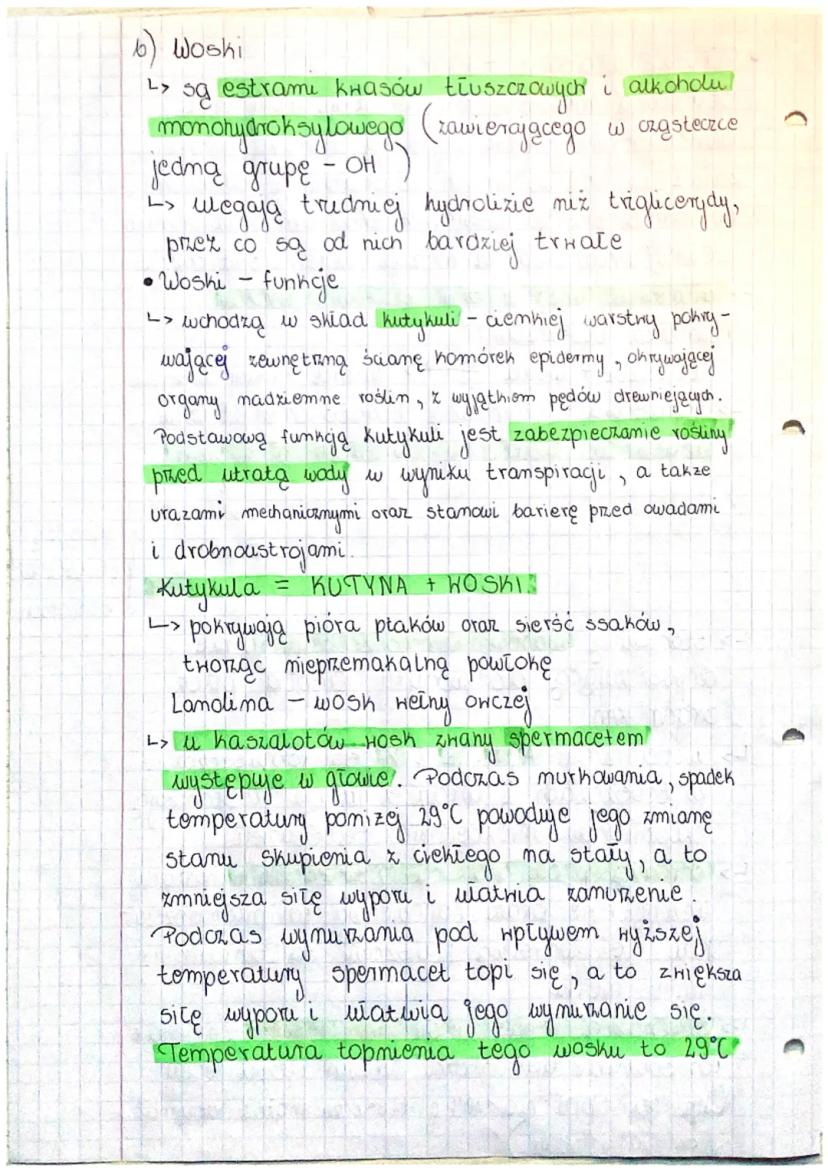 b) Woski
↳ są estrami kwasów tłuszczowych i alkoholu
monohydroksylowego (zawierającego w cząsteczce
jedną grupę - OH )
↳ ulegają trudniej hydrolizie niż triglicerydy,
przez co są od nich bardziej trwałe
• Woski - funkcje
↳ wchodzą w skład kutykuli - cienkiej warstwy pokry-
wającej zewnętrzną ścianę komórek epidermy, okrywającej
organy nadziemne roślin, z wyjątkiem pędów drewniejących.
Podstawową funkcją kutykuli jest zabezpieczanie rośliny
przed utratą wody w wyniku transpiracji, a także
urazami mechanicznymi oraz stanowi barierę przed owadami
i drobnoustrojami.
Kutykula = KUTYNA + WOSKI
↳ pokrywają pióra ptaków oraz sierść ssaków,
tworząc nieprzemakalną powłokę
Lanolina - wosk wełny owczej
↳ u kaszalotów wosk znany spermacetem
występuje w głowie. Podczas nurkowania, spadek
temperatury poniżej 29°C powoduje jego zmianę
stanu skupienia z ciekłego na stały, a to
zmniejsza siłę wyporu i ułatwia zanurzenie.
Podczas wynurzania pod wpływem wyższej
temperatury spermacet topi się, a to zwiększa
siłę wyporu i ułatwia jego wynurzanie się.
Temperatura topnienia tego wosku to 29°C